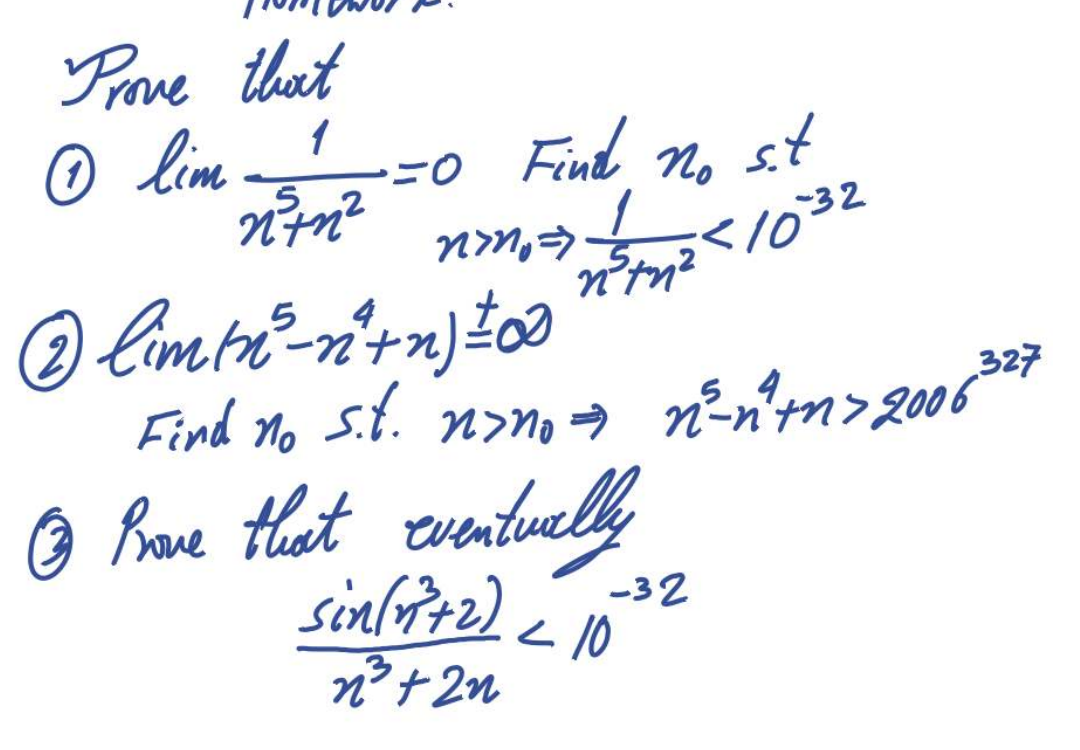 Homework.
Prove that
① lim 1/(n⁵+n²) = 0 Find n₀ s.t
n>n₀ ⇒ 1/(n⁵+n²) < 10⁻³²
② lim(n⁵-n⁴+n) = +∞
Find n₀ s.t. n>n₀ ⇒ n⁵-n⁴+n > 2006³²⁷
③ Prove that eventually
sin(n³+2)/(n³+2n) < 10⁻³²